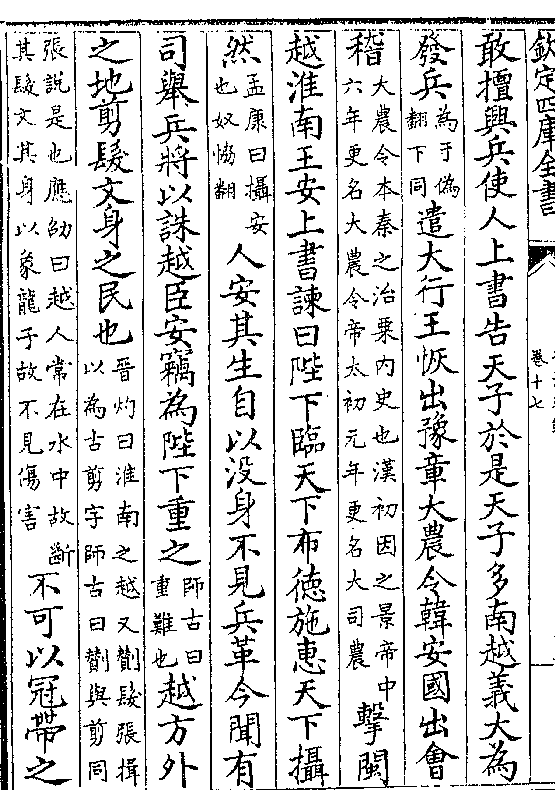 欽定四庫全書
卷十七
敢擅興兵使人上書告天子於是天子多南越義大為
發兵為于偽翻下同遣大行王恢出豫章大農令韓安國出會
稽大農令本秦之治粟內史也漢初因之景帝中六年更名大農令帝太初元年更名大司農擊閩
越淮南王安上書諫曰陛下臨天下布德施惠天下攝
然孟康曰攝安也奴恊翻人安其生自以沒身不見兵革今聞有
司舉兵將以誅越臣安竊為陛下重之師古曰重難也越方外
之地剪髮文身之民也晉灼曰淮南之越又劗髮張揖以為古剪字師古曰劗與剪同
張說是也應劭曰越人常在水中故斷其髮文其身以象龍子故不見傷害不可以冠帶之